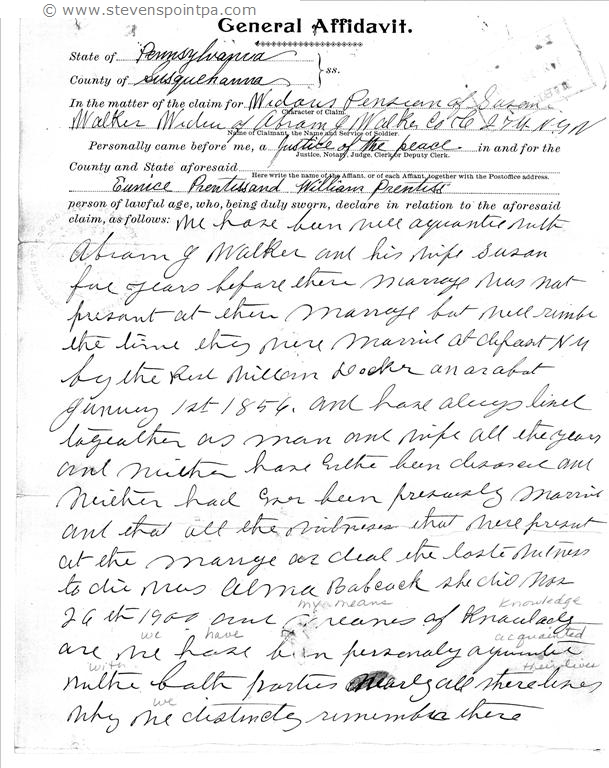 © www.stevenspointpa.com
General Affidavit.
State of Pennsylvania
County of Susquehanna
} ss.
In the matter of the claim for Widows Pension of Susan
Character of Claim.
Walker Widow of Abram J Walker Co H 27th N Y V
Name of Claimant, the Name and Service of Soldier.
Personally came before me, a Justice of the peace in and for the
Justice, Notary, Judge, Clerk or Deputy Clerk.
County and State aforesaid
Here write the name of the Affiant, or of each Affiant, together with the Postoffice address.
Eunice Prentiss and William Prentiss
person of lawful age, who, being duly sworn, declare in relation to the aforesaid
claim, as follows: We have been well aquantie with
Abram J Walker and his wife Susan
five years before there marrage was not
presant at there marrage but well rember
the time they were married at N Y
by the Rev William Decker on or about
January 1st 1856. and have always lived
togeather as man and wife all the years
and neither have been and
Neither had Ever been previously married
and that all the witnesses that were present
at the marrage ar dead the laste witness
to die was Alma Babcock she did Nov
26th 1900 and means of Knowladg
my means knowledge
are we have been personaly
we have acquainted
with the both parties nearly all there lives
with their lives
why we distinctly remember there
we